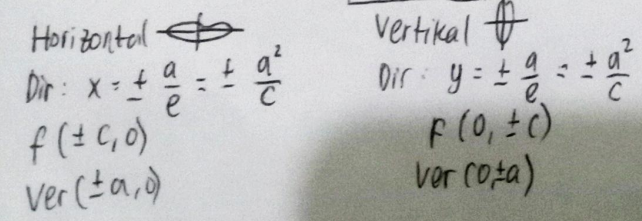 Horizontal
Dir: x = ± a/e = ± a²/c
f (± c, 0)
Ver (± a, 0)
Vertikal
Dir: y = ± a/e = ± a²/c
F (0, ± c)
Ver (0, ±a)